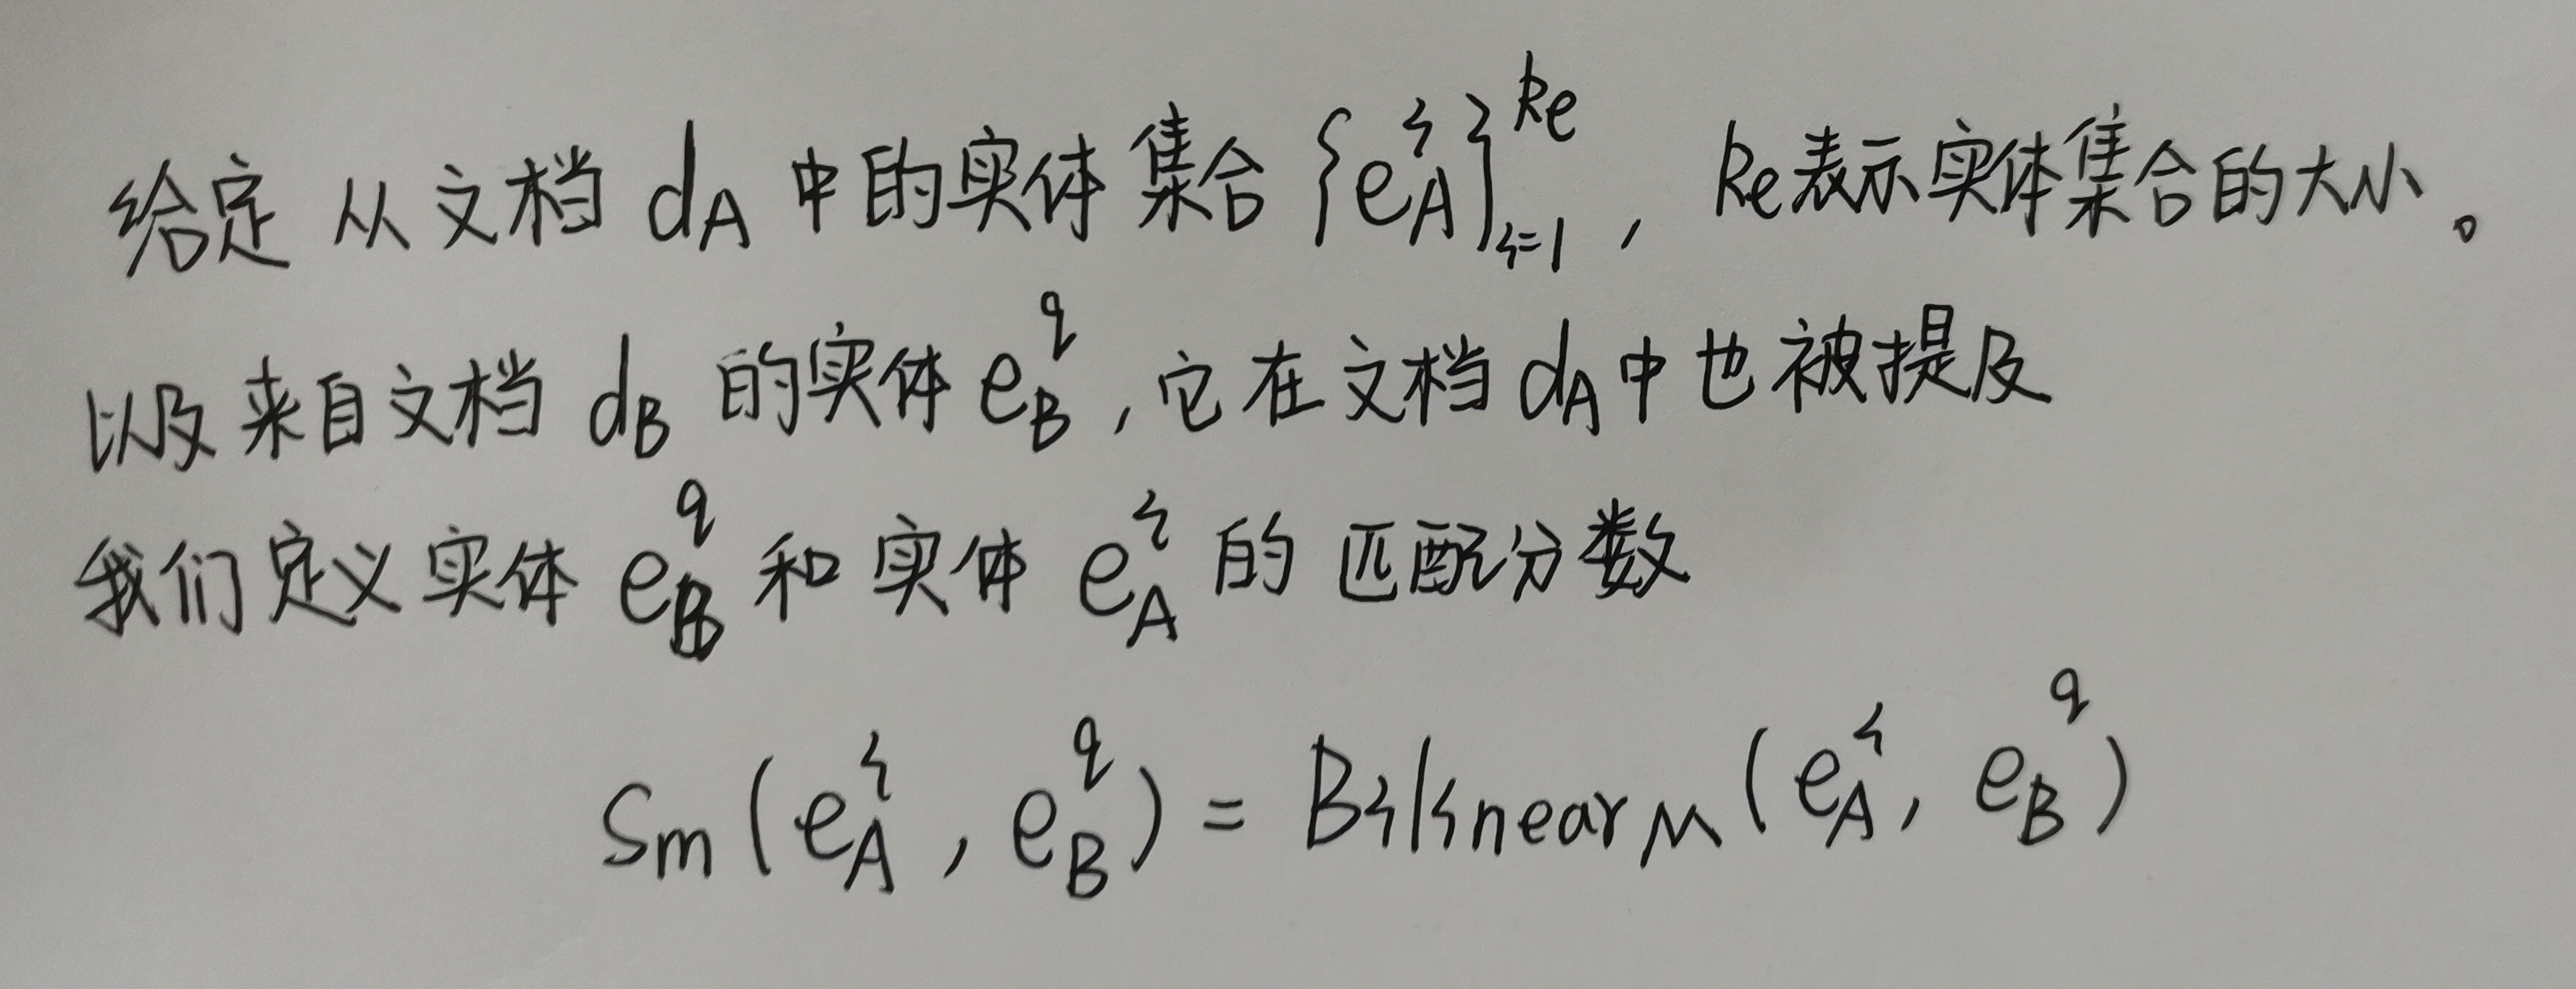 给定从文档 $d_A$ 中的实体集合 $\{e_A^i\}_{i=1}^{ke}$, ke表示实体集合的大小。
以及来自文档 $d_B$ 的实体 $e_B^q$, 它在文档 $d_A$ 中也被提及
我们定义实体 $e_B^q$ 和实体 $e_A^i$ 的匹配分数
$S_m(e_A^i, e_B^q) = Bilinear_M(e_A^i, e_B^q)$